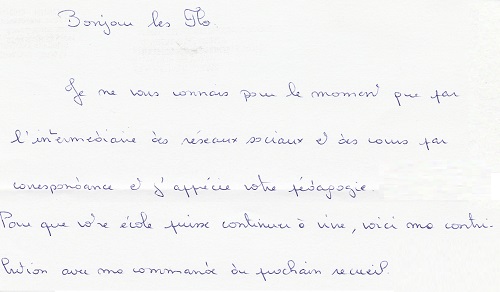 Bonjour les Flo.
Je ne vous connais pour le moment que par
l'intermédiaire des réseaux sociaux et des cours par
correspondance et j'apprécie votre pédagogie.
Pour que votre école puisse continuer à vivre, voici ma contri-
bution avec ma commande du prochain recueil.